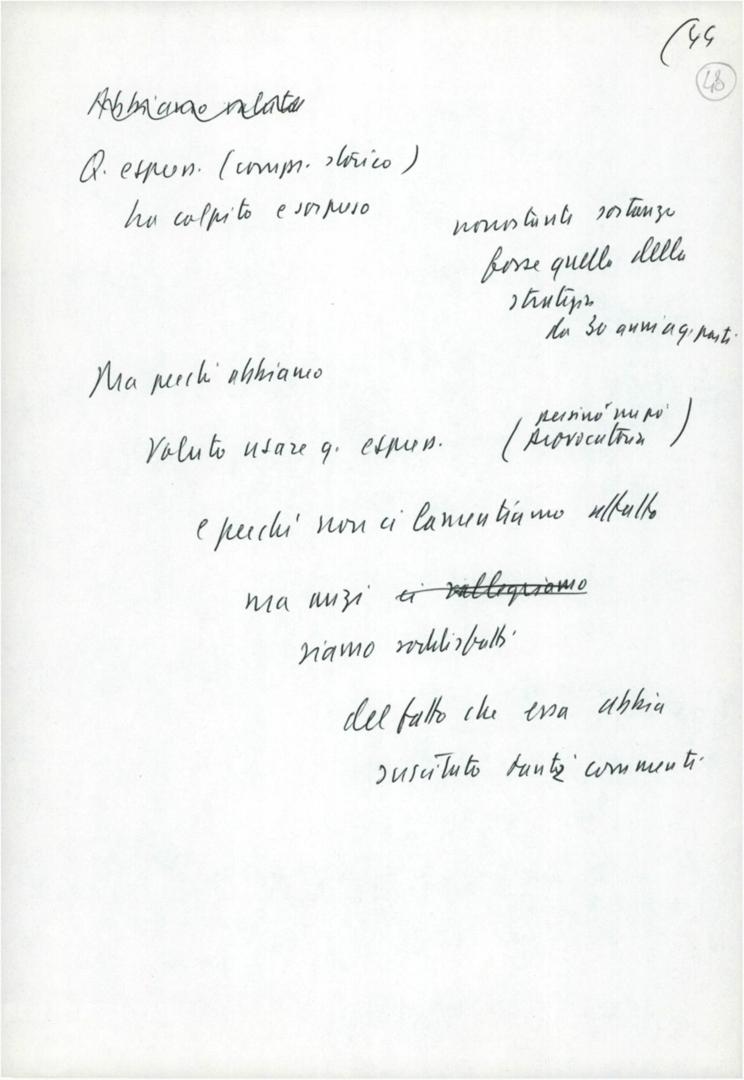 (44
48
Abbiamo voluto
Q. espress. (compr. storico)
ha colpito e sorpreso
nonostante sostanza
fosse quella della
strategia
da 30 anni a q. parte
Ma perché abbiamo
voluto usare q. espress.
(persino un po'
provocatoria)
e perché non ci lamentiamo affatto
ma anzi ci rallegriamo
siamo soddisfatti
del fatto che essa abbia
suscitato tanti commenti.